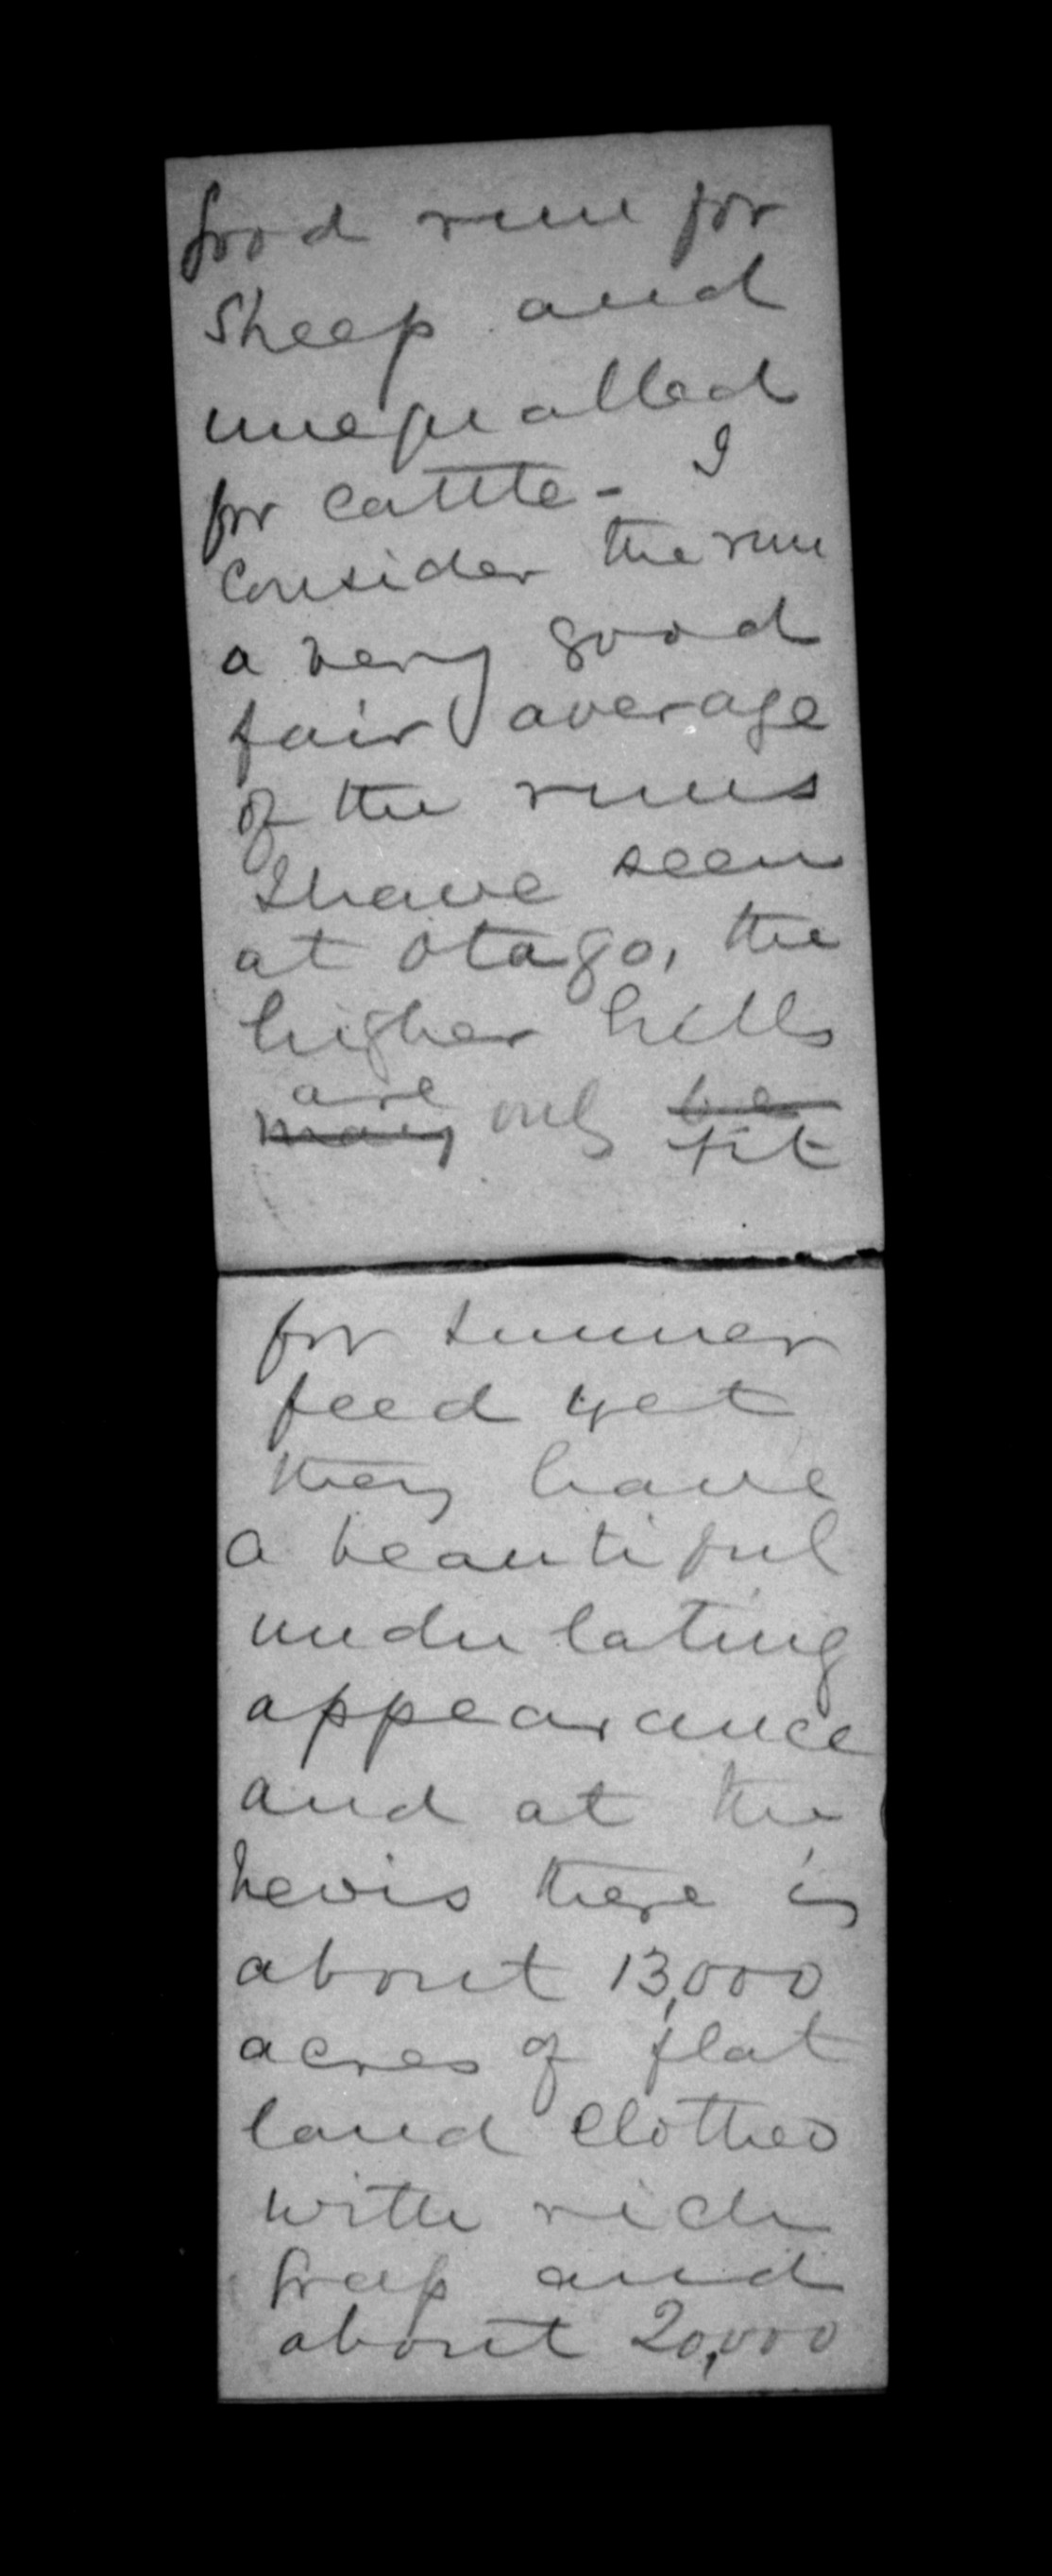 good run for
Sheep and
unequalled
for cattle - I
Consider the run
a very good
fair average
of the runs
I have seen
at Otago, the
higher hills
are
may only be
fit
for summer
feed yet
they have
a beautiful
undulating
appearance
and at the
Nevis there is
about 13,000
acres of flat
land clothed
with rich
Grass and
about 20,000